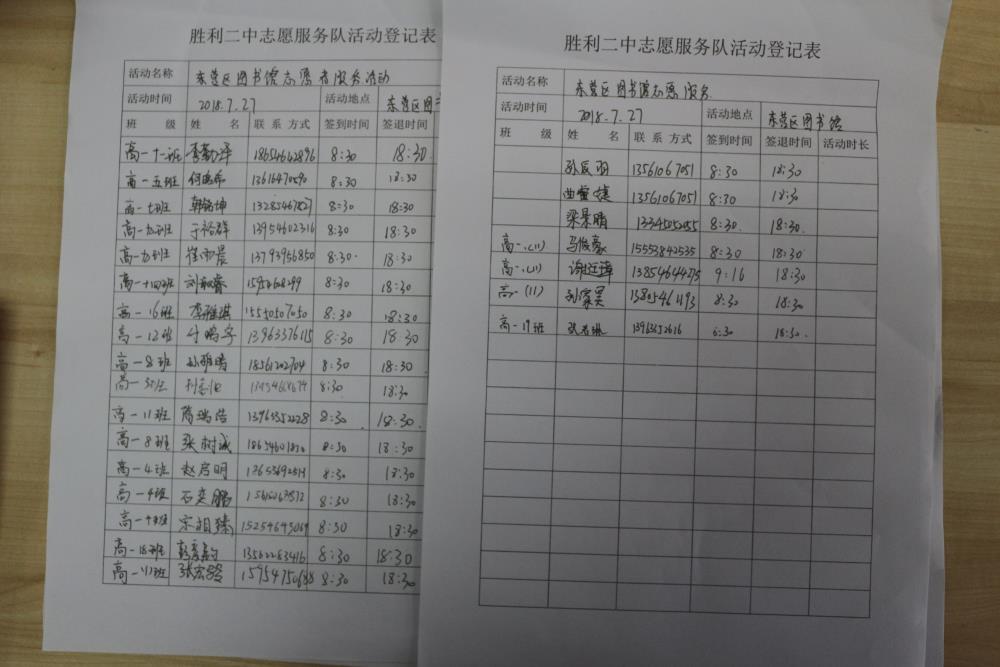 胜利二中志愿服务队活动登记表
活动名称 东营区图书馆志愿者服务活动
活动时间 2018.7.27 活动地点 东营区图书
班 级 姓 名 联系方式 签到时间 签退时间
高一十一班 18654662896 8:30 18:30
高一五班 13616470590 8:30 18:30
高一七班 韩铭坤 8:30 18:30
高一九班 于裕群 13954602316 8:30 18:30
高一九班 崔雨晨 13793956850 8:30 18:30
高一十四班 8:30 18:30
高一16班 李雅淇 1550507050 8:30 18:30
高一12班 13963376115 8:30 18:30
高一8班 孙雅晴 18561202704 8:30 18:30
高一 8:30 18:30
高一11班 13963352228 8:30 18:30
高一8班 张树诚 8:30 18:30
高一4班 赵启明 8:30 18:30
高一4班 石奕鹏 8:30 18:30
高一 宋祖臻 8:30 18:30
高一18班 13562283416 8:30 18:30
高一11班 张宏铃 8:30 18:30
胜利二中志愿服务队活动登记表
活动名称 东营区图书馆志愿服务
活动时间 2018.7.27 活动地点 东营区图书馆
班 级 姓 名 联系方式 签到时间 签退时间 活动时长
孙辰羽 13561067051 8:30 18:30
13561067051 8:30 18:30
梁景晴 8:30 18:30
高一.(11) 马俊豪 15553842535 8:30 18:30
高一.(11) 13854644275 9:16 18:30
高一(11) 孙家昊 13805461193 8:30 18:30
高一19班 13963352616 8:30 18:30